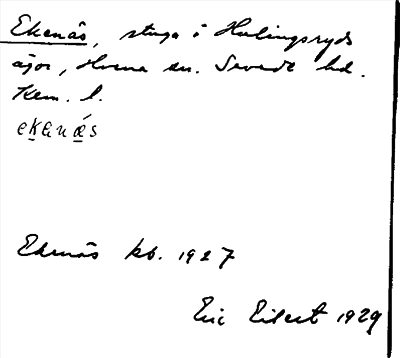 Ekenäs, stuga i Hulingsryds
ägor, Hvena sn. Sevede hd.
Kalm. l.
ekanä́s
Ekenäs kb. 1927
Eric Eilert 1929